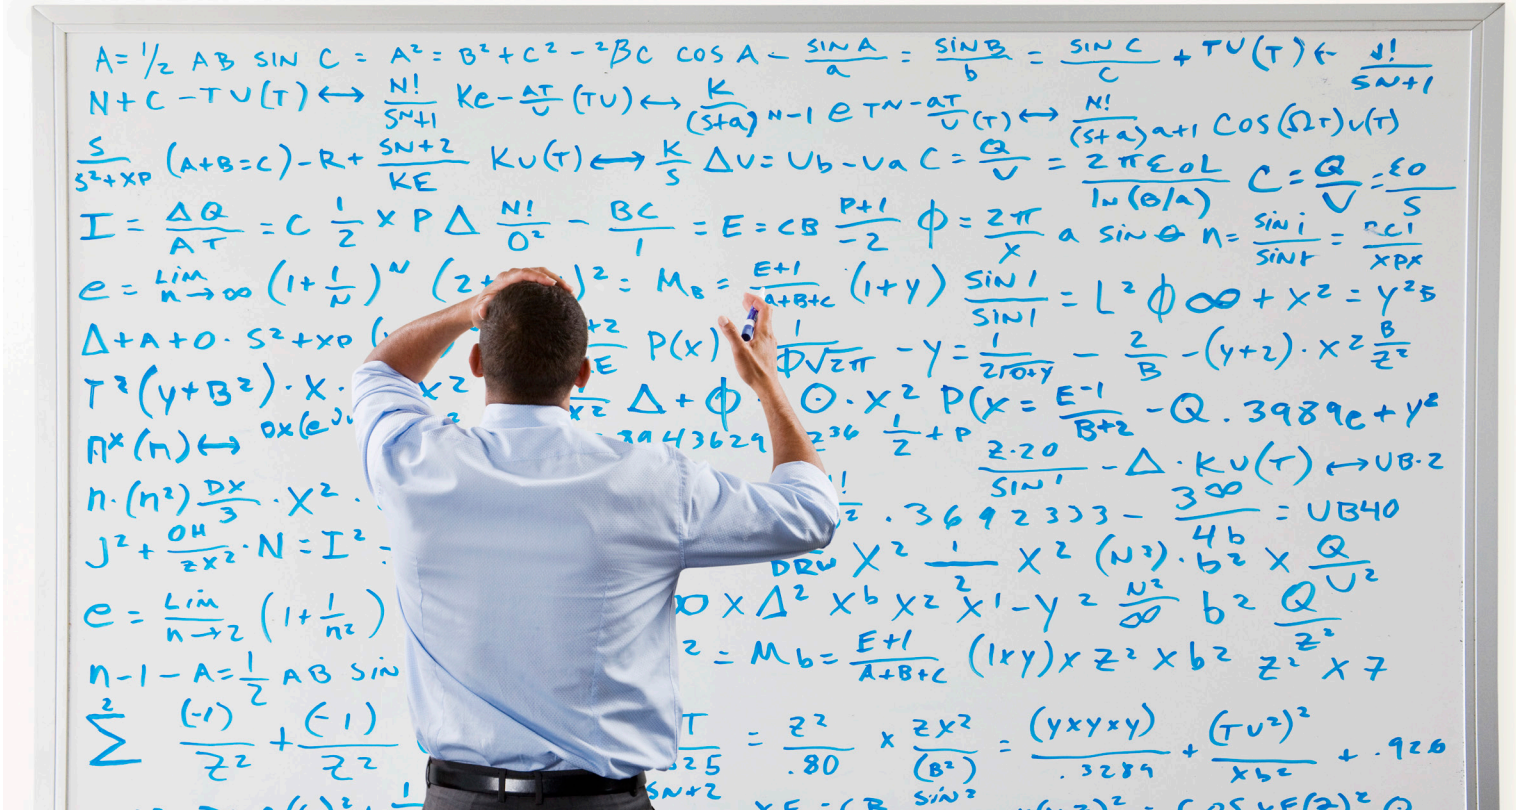 A = 1/2 AB SIN C = A² = B² + C² - ²BC COS A - SIN A / a = SIN B / b = SIN C / C + TU(T) ← N! / SN+1
N + C - TU(T) ↔ N! / SN+1 Ke - AT / U (TU) ↔ K / (S+a) N-1 e TN - aT / U (T) ↔ N! / (S+a) a+1 COS(ΩT)U(T)
S / S²+XP (A+B=C) - R + SN+2 / KE KU(T) ↔ K / S ΔU = Ub - Ua C = Q / U = 2πEoL / ln(B/a) C = Q / V = εo / S
I = ΔQ / AT = C 1/2 X P Δ N! / O² - BC / 1 = E = CB P+1 / -2 ϕ = 2π / X a sin θ n = SIN i / SIN r = / XPX
e = LIM n→∞ (1 + 1/N)ᴺ (2+ )² = MB = E+1 / A+B+C (1+Y) SIN 1 / SIN 1 = L² ϕ ∞ + X² = Y²B
Δ + A + O · S² + XP ( +2 / E P(X) 1 / ϕ√2π - Y = - 2 / B - (Y+2) · X² B / Z²
T²(Y+B²) · X · X² / X² Δ + ϕ O · X² P(X = E-1 / B+2 - Q .3989e + Y²
n^x (n) ↔ DX(e 8943629 Z36 1/2 + P Z·20 / SIN ' - Δ · KU(T) ↔ UB·2
n·(n²) DX / 3 · X² · ! / 2 .3692333 - 3∞ / 4b = UB40
J² + OH / ZX² · N = I² = DRW X² 1/2 X² (N²)·b² X Q / U²
e = LIM n→2 (1 + 1/n²) ∞ X Δ² X^b X² X¹ - Y² N² / ∞ b² Q / Z²
n - 1 - A = 1/2 AB SIN ² = Mb = E+1 / A+B+C (1XY) X Z² X b² Z² X 7
²∑ (-1) / Z² + (-1) / Z² T / 325 = Z² / .80 X ZX² / (B²) = (YXYXY) / .3289 + (TU²)² / Xb² + .926
SN+2 SIN²